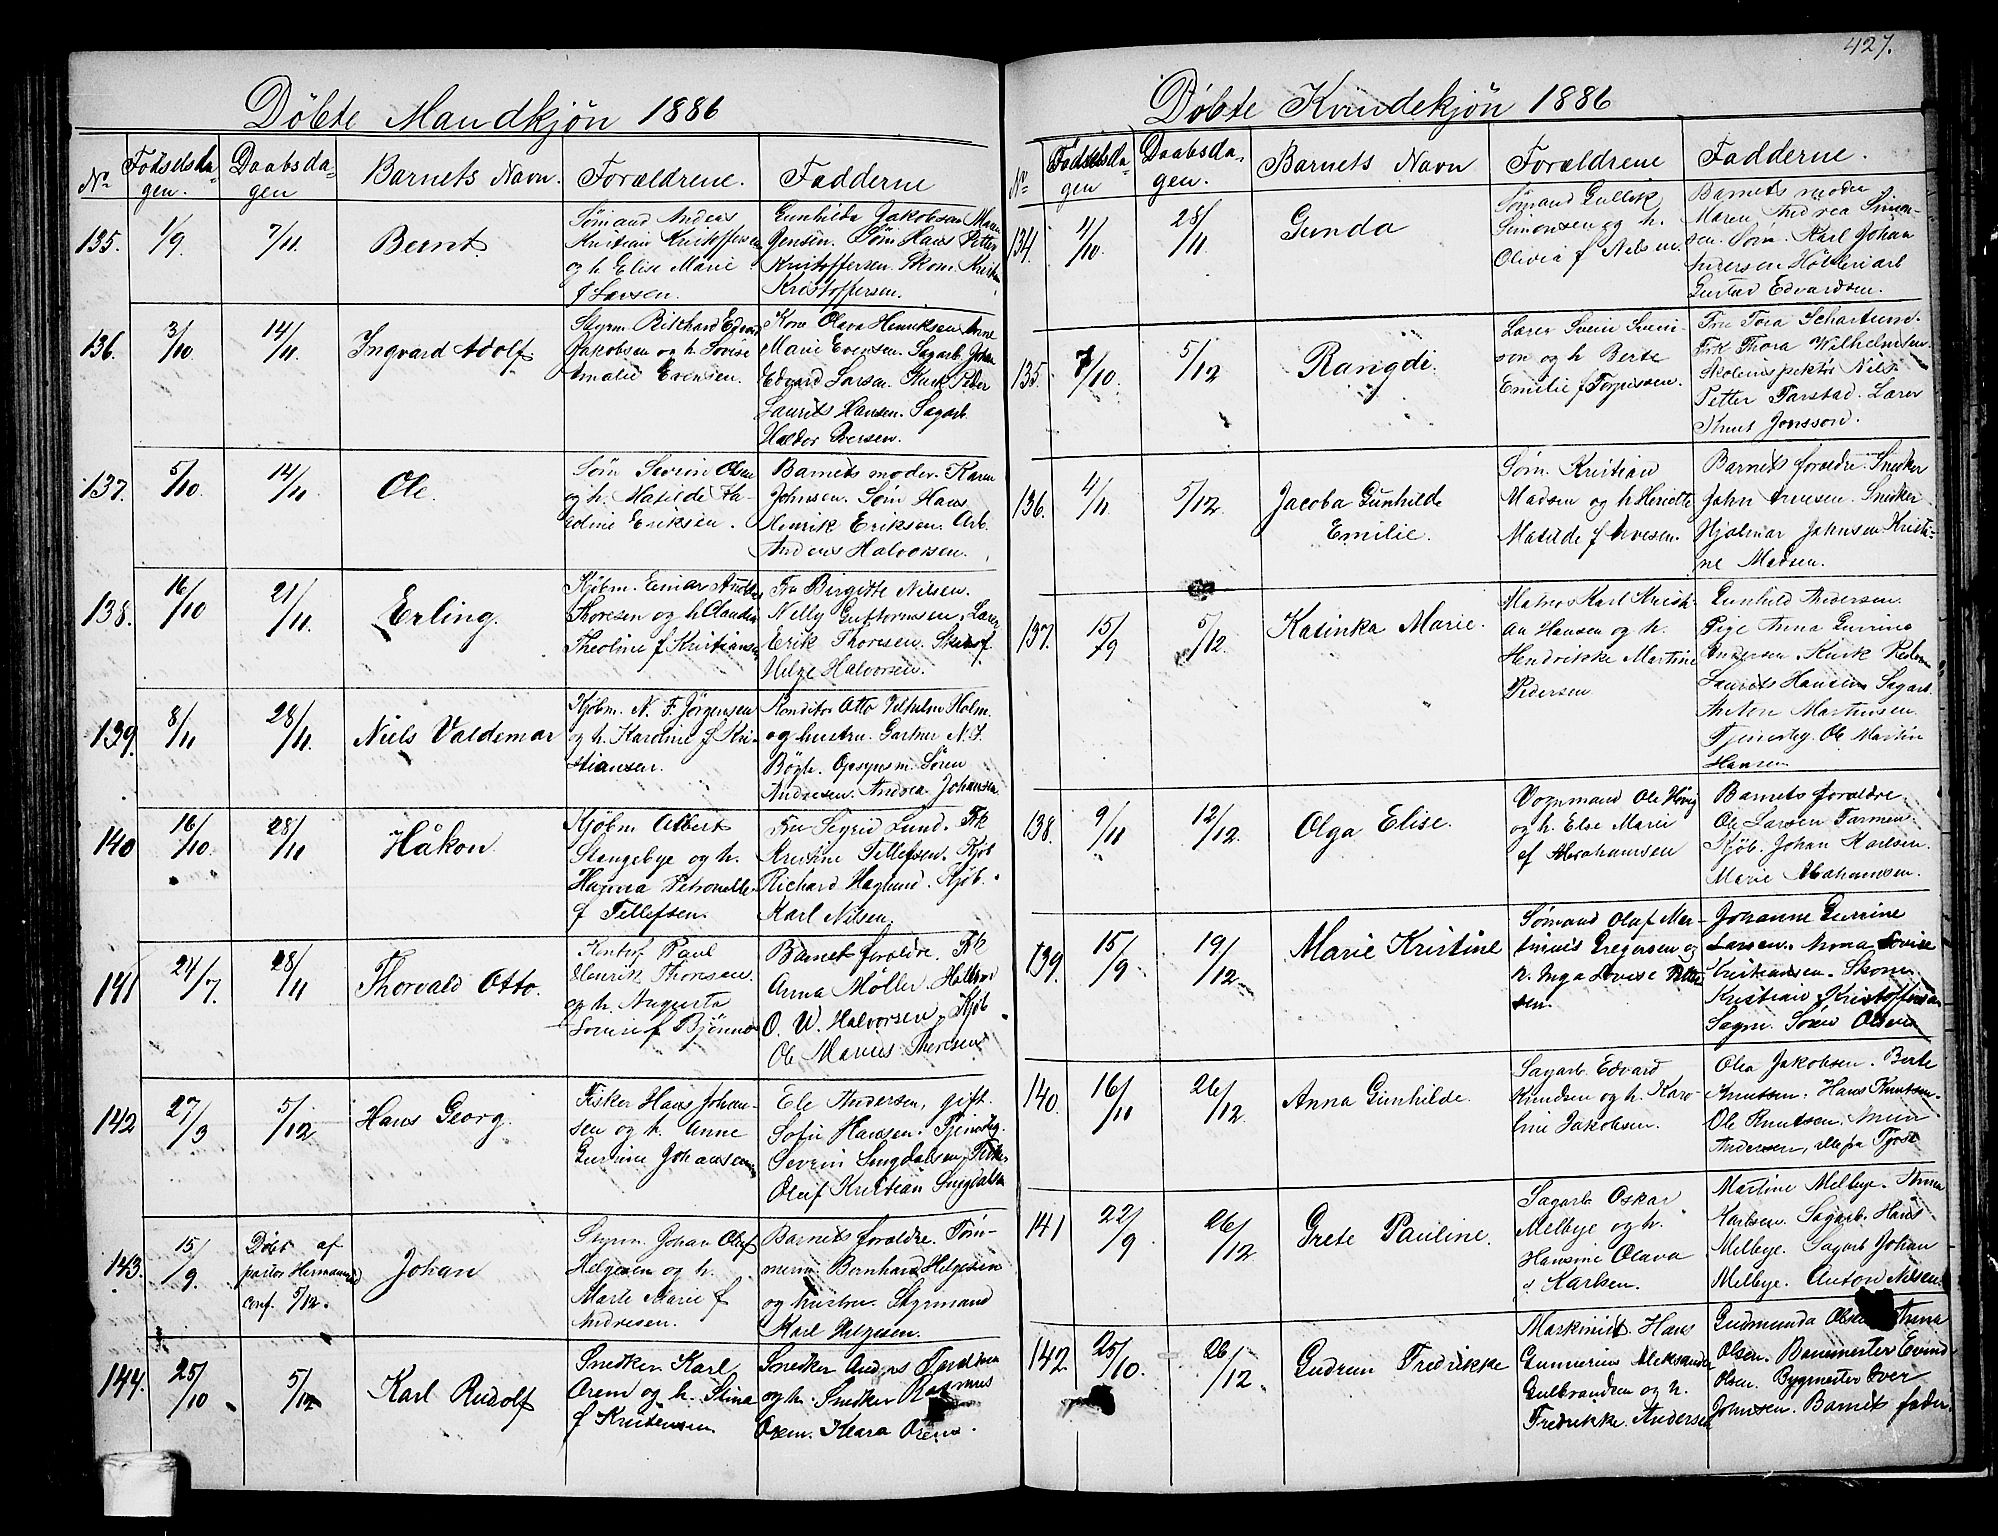 427.
Döbte Mandkjön 1886
No. Födselsda- gen. Daabsda- gen Barnets Navn. Forældrene. Fadderne
135. 1/9 7/11 Bernt.
Sömand Andeas
Kristian Kristoffersen
og h. Elise Marie
f Larsen.
Gunhilda Jakobsen Maren
Jensen. Söm Hans Petter
Kristoffersen. Skom. Kristian
Kristoffersen.
136. 3/10 14/11 Ingvard Adolf
Styrm. Rikhard Edvard
Jakobsen og h. Lovise
Amalie Evensen.
Kone Olava Henriksen Anne
Marie Evensen. Sagarb. Johan
Edvard Larsen. Kusk Peder
Laurits Hansen. Sagarb.
Haldor Iversen.
137. 5/10 14/11 Ole.
Söm Severin Olsen
og h. Matilde Ka-
roline Eriksen.
Barnets moder. Karen
Johnsen. Söm Hans
Henrik Eriksen. Arb.
Anders Halvorsen.
138. 16/10 21/11 Erling.
Kjöbm. Einar
Thoresen og h. Claudia
Theoline f Kristiansen
Fru Birgitte Nilsen.
Nelly Guttormsen. Lærer
Erik Thoresen. Skibsf.
Helge Halvorsen.
139. 8/11 28/11 Niels Valdemar
Kjöbm. N. F. Jörgensen
og h. Karoline f Kri-
stiansen.
Konditor Otto Vilhelm Holm.
og hustru. Gartner N. J.
Bögh. Opsynsm. Sören
Andresen. Andrea Johansen
140 16/10 28/11 Håkon
Kjöbm Albert
Stangebye og h.
Hanna Petronelle
f Tellefsen.
Fru Sigrid Lund. Frk
Kristine Tellefsen. Kjöb
Richard Haglund. Kjöb.
Karl Nilsen.
141 24/7. 28/11 Thorvald Otto.
Paul
Henrik Thoresen
og h. Augusta
Lovise f Bjönnes
Barnet forældre. Frk
Anna Möller.
O. W. Halvorsen. Kjöb
Ole Marius Thoresen
142 27/3 5/12 Hans Georg.
Fisker Hans Johan-
sen og h. Anne
Gurine Johansen
Ele Andersen, gift.
Sofie Hansen. Tjenestg.
Severin Smgdalsen, Fisker
Oluf Kristian Smgdalsen
143. 15/9. Döbt af
pastor Hermansen
conf. 5/12. Johan
Styrm. Johan Oluf
Helgesen og h.
Marte Marie f
Andresen.
Barnets forældre. Töm-
merm. Bernhard Helgesen
og hustru. Styrmand
Karl Helgesen.
144. 25/10 5/12 Karl Rudolf
Snedker Karl
Orem og h. Stina
f Kristensen
Snedker Anders
og h. Snedker Rasmus
Orem. Klara Orem.
Döbte Kvindekjön 1886
No. Födselsda- gen Daabsda- gen. Barnets Navn Forældrene Fadderne.
134. 1/10 28/11 Gunda
Sömand Gullik
Simonsen og h.
Olivia f Nilsen
Barnets moder
Maren Andrea Simon-
sen. Söm. Karl Johan
Andersen Hölleriarb
Gustav Edvardsen.
135. 7/10. 5/12 Rangdi.
Lærer Svein Svein-
son og h Berte
Emilie f Torgussen.
Fru Tora Schartund.
Frk Thora Wilhelmsen.
Skoleinspektör Nils
Petter Tarstad. Lærer
Knut Jonsson.
136. 4/11 5/12. Jacoba Gunhilde
Emilie.
Söm. Kristian
Madsen og h Henriette
Matilde f Arvesen.
Barnets forældre. Snedker
John Arvesen. Snedker
Hjalmar Johnsen. Kristi-
ne Madsen.
137. 15/9 5/12. Katinka Marie.
Matros Karl Kristi-
an Hansen og h.
Hendrikke Martine
Pedersen
Gunhild Andersen.
Pige Anna Gurine
Andersen. Kusk Peder
Laurits Hansen Sagarb.
Anton Martinsen.
Tjenestg. Ole Martin
Hansen
138. 9/11 12/12. Olga Elise.
Vognmand Ole Hövig
og h. Else Marie
af Abrahamsen
Barnets forældre.
Ole Larsen Farmen.
Kjöb. Johan Karlsen.
Marie Abrahamsen.
139. 15/9 19/12. Marie Kristine
Sömand Oluf Mar-
tinius Gregersen og
h. Inga Lovise Petter
sen.
Johanne Gurine
Larsen. Anna Lovise
Kristiansen. Skom.
Kristian Kristoffersen
Sagm. Sören Olsen
140. 16/11 26/12. Anna Gunhilde.
Sagarb. Edvard
Knudsen og h. Karo-
line Jakobsen.
Olea Jakobsen. Berte
Knutsen. Hans Knutsen.
Ole Knutsen.
Andersen, alle fra Tjose
141 22/9 26/12. Grete Pauline.
Sagarb Oskar
Melbye og h.
Hansine Olava
Karlsen.
Martine Melbye. Anna
Karlsen. Sagarb. Hans
Melbye. Sagarb Johan
Melbye. Anton Nilsen.
142 25/10. 26/12. Gudrun Fredrikke
Maskinist. Hans
Gunnerius Aleksander
Gulbrandsen og h.
Fredrikke Andersen
Gudmunda Olsen Anna
Olsen. Banemester Evind
Olsen. Bygmester Iver
Johnsen. Barnets fader.